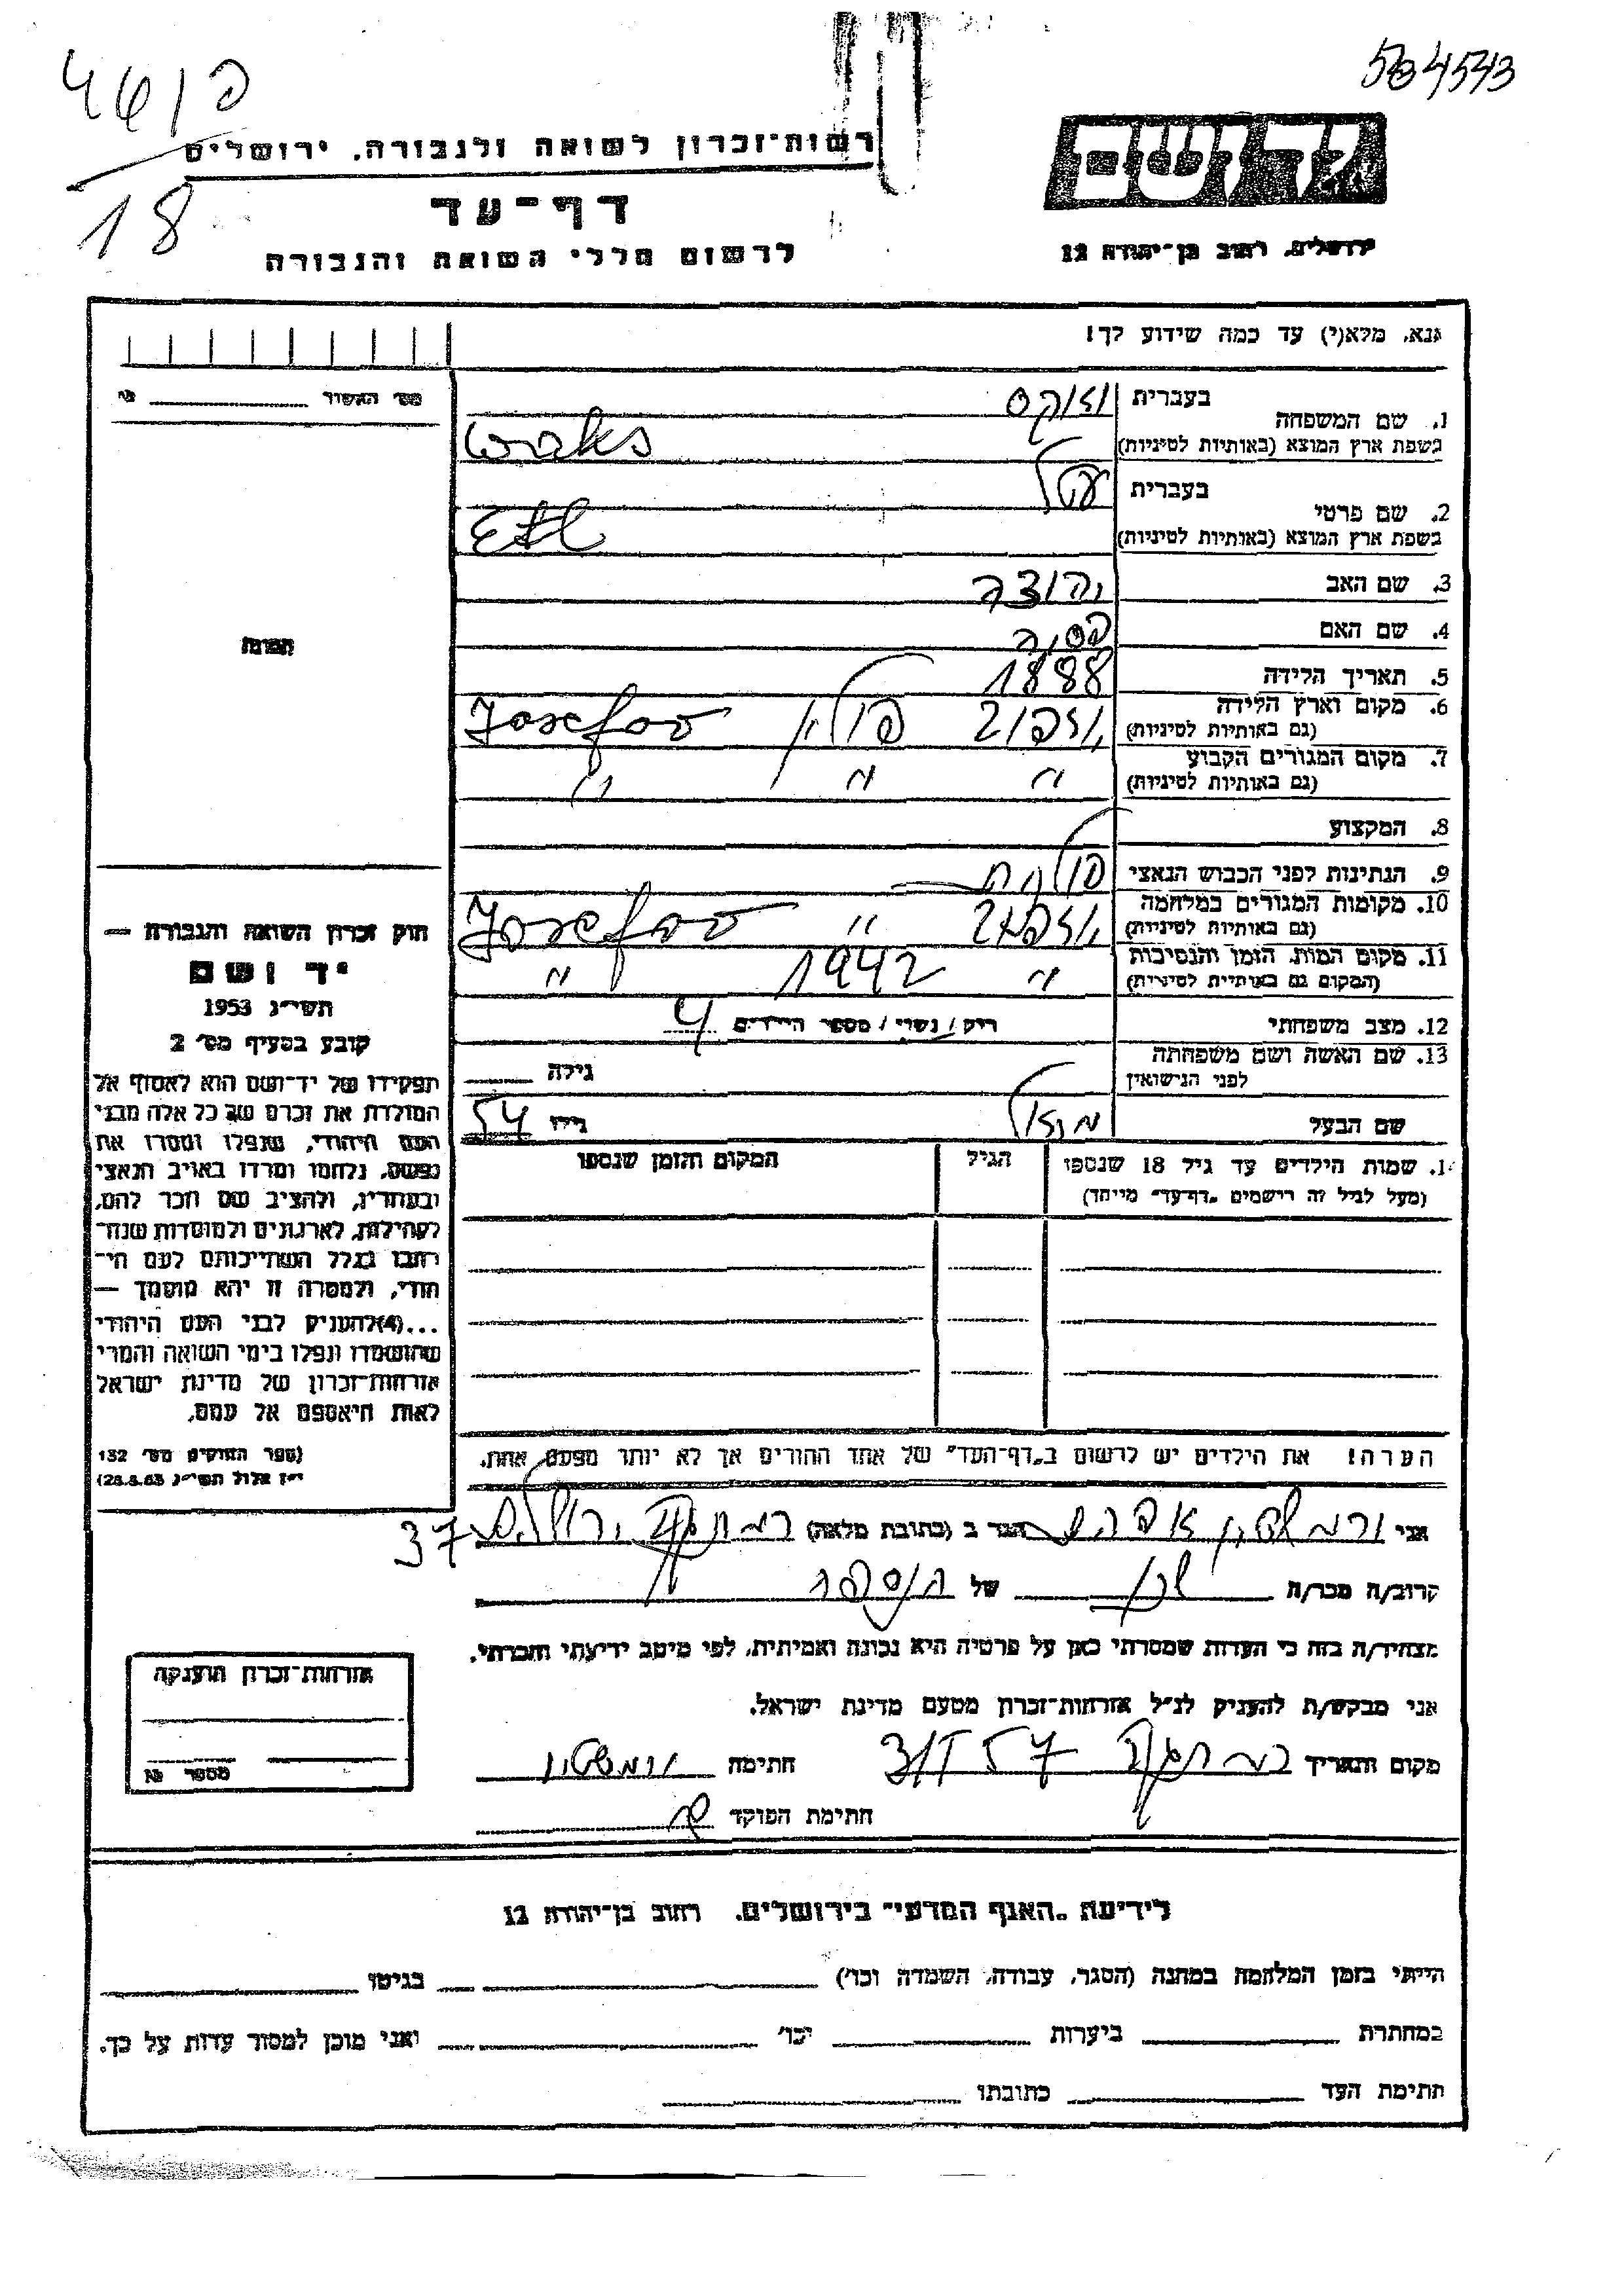 534543
פ / 464
18
רשות־זכרון לשואה ולגבורה, ירושלים
יד ושם
דף־עד
לרשום חללי השואה והגבורה
ירושלים, רחוב בן־יהודה 12
נא, מלא(י) עד כמה שידוע לך!
מס׳ האשור
1. שם המשפחה
בעברית
וואקס
בשפת ארץ המוצא (באותיות לטיניות)
Waks
2. שם פרטי
בעברית
עטל
בשפת ארץ המוצא (באותיות לטיניות)
Etl
3. שם האב יהודה
4. שם האם
5. תאריך הלידה 1888
6. מקום וארץ הלידה
(גם באותיות לטיניות)
יוזפוב פולין Josefoo
7. מקום המגורים הקבוע
(גם באותיות לטיניות)
״ ״ ״
8. המקצוע
9. הנתינות לפני הכבוש הנאצי פולנית
10. מקומות המגורים במלחמה
(גם באותיות לטיניות)
יוזפוב ״ Josefoo
11. מקום המות, הזמן והנסיבות
(המקום גם באותיות לטיניות)
״ 1942 ״
12. מצב משפחתי רווק / נשוי / מספר הילדים 4
13. שם האשה ושם משפחתה
לפני הנישואין
גילה
שם הבעל גילו 54
14. שמות הילדים עד גיל 18 שנספו
(מעל לגיל זה רישמים „דף־עד״ מייחד)
הגיל
המקום והזמן שנספו
הערה! את הילדים יש לרשום ב„דף־העד״ של אחד ההורים אך לא יותר מפעם אחת.
תמונה
חוק זכרון השואה והגבורה —
יד ושם
תשי״ג 1953
קובע בסעיף מס׳ 2
תפקידו של יד־ושם הוא לאסוף אל
המולדת את זכרם של כל אלה מבני
העם היהודי, שנפלו ומסרו את
נפשם, נלחמו ומרדו באויב הנאצי
ובעוזריו, ולהציב שם וזכר להם,
לקהילות, לארגונים ולמוסדות שנח־
רבו בגלל השתייכותם לעם הי־
הודי, ולמטרה זו יהא מוסמך —
...(4) להעניק לבני העם היהודי
שהושמדו ונפלו בימי השואה והמרי
אזרחות־זכרון של מדינת ישראל
לאות היאספם אל עמם.
(ספר החוקים מס׳ 132
י״ז אלול תשי״ג 28.8.53)
אני אברהם הגר ב (כתובת מלאה) ירושלים 37
קרוב/ה מכר/ה שכן של הנספה
מצהיר/ה בזה כי העדות שמסרתי כאן על פרטיה היא נכונה ואמיתית, לפי מיטב ידיעתי והכרתי.
אני מבקש/ת להעניק לנ״ל אזרחות־זכרון מטעם מדינת ישראל.
מקום ותאריך 57 חתימה
חתימת הפוקד
אזרחות־זכרון הוענקה
מספר
לידיעת „האגף המדעי״ בירושלים, רחוב בן־יהודה 12
הייתי בזמן המלחמה במחנה (הסגר, עבודה, השמדה וכו׳) בגיטו
במחתרת ביערות וכו׳ ואני מוכן למסור עדות על כך.
חתימת העד כתובתו